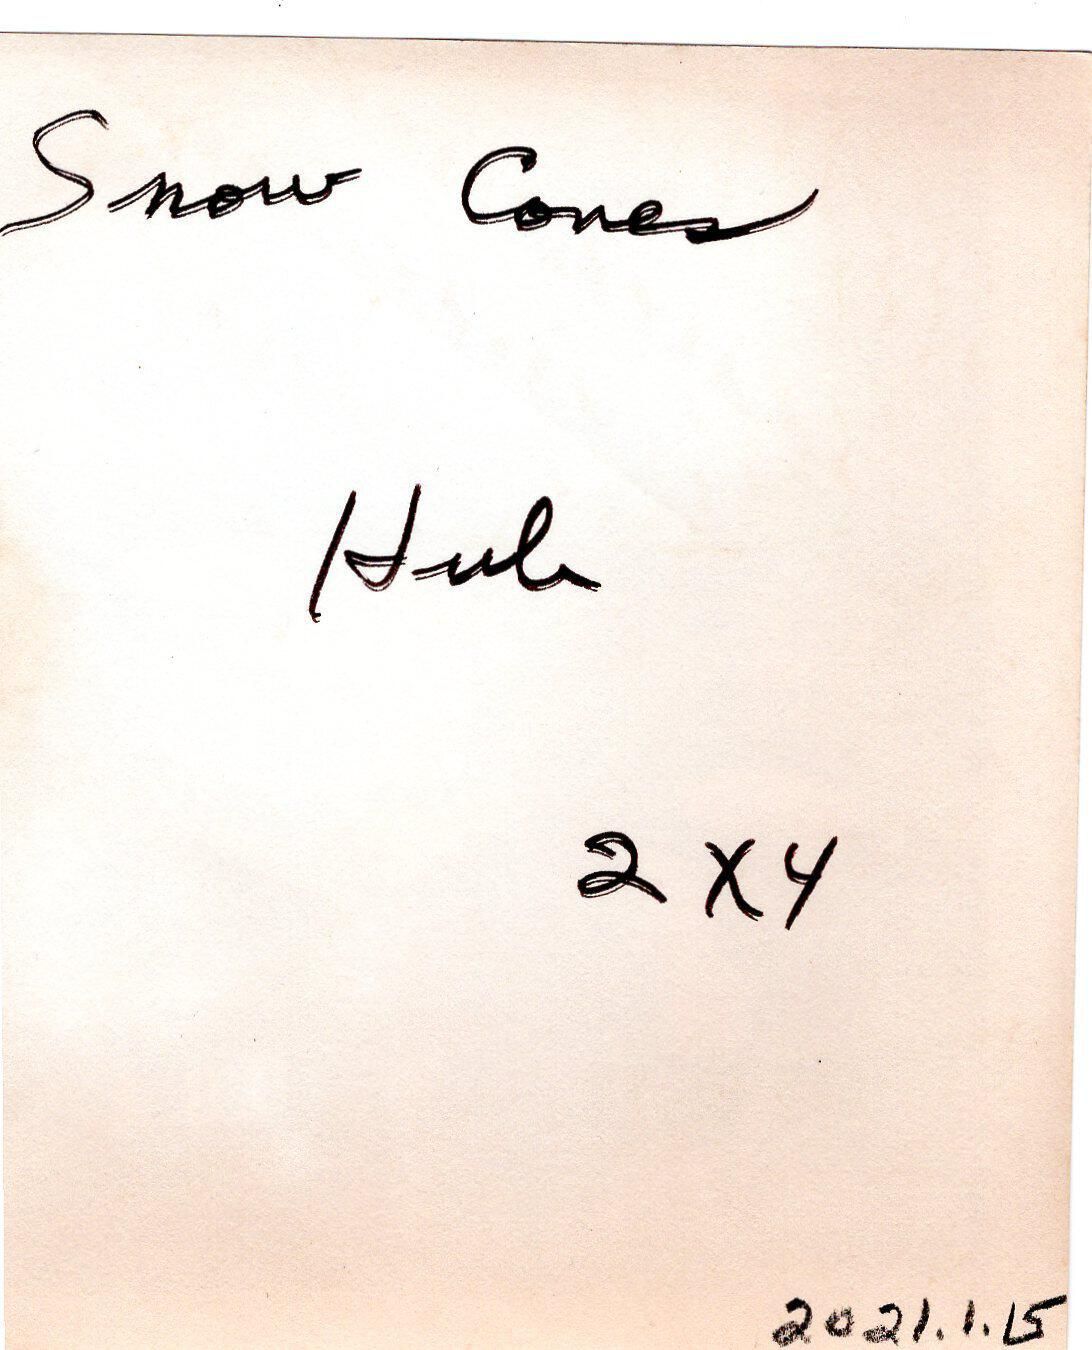 Snow Cones
Hub
2 X 4
2021.1.15